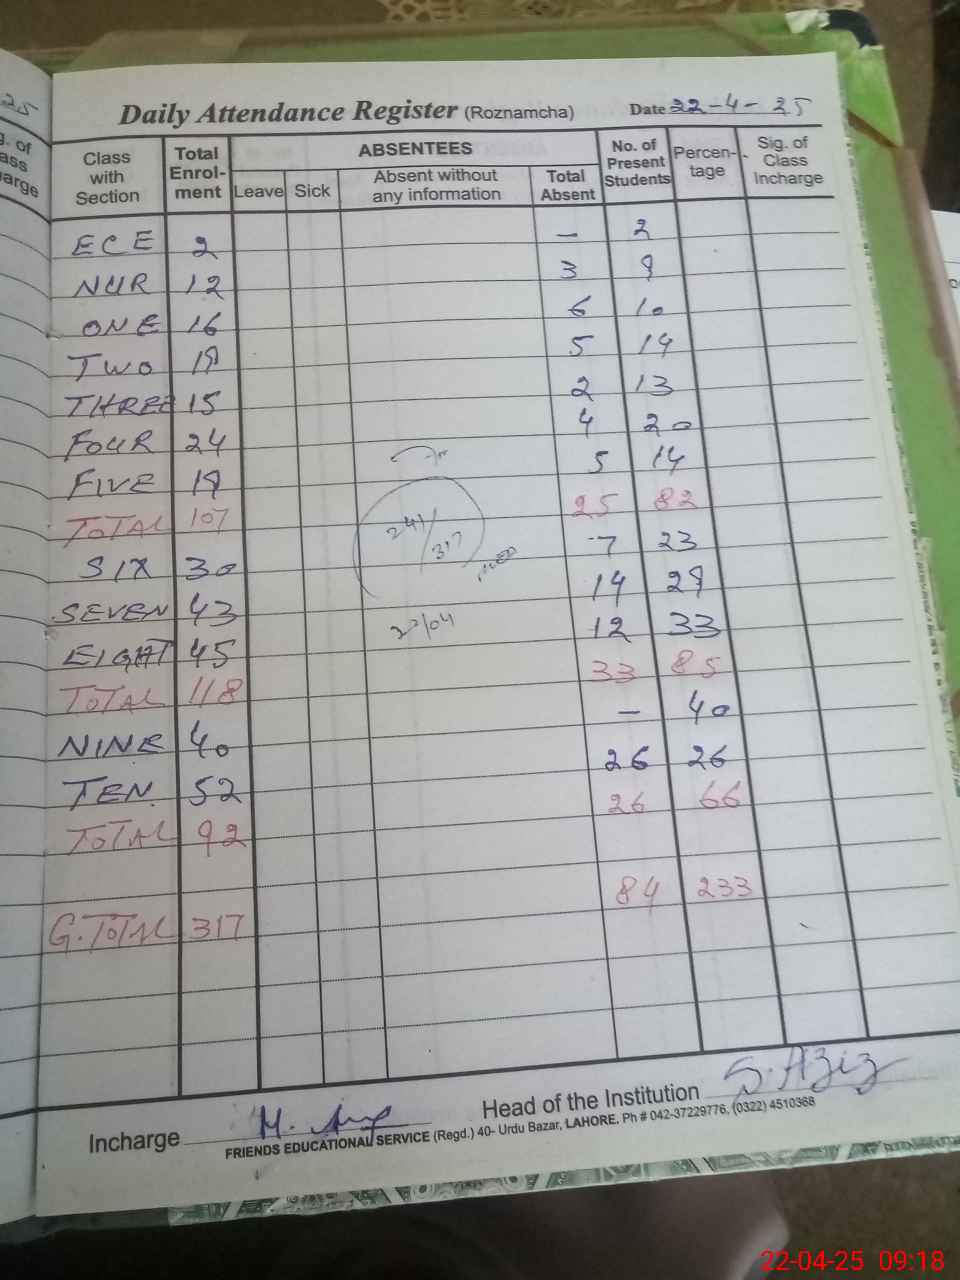 25
g. of
ass
arge
Daily Attendance Register (Roznamcha) Date 22-4-25
Class with Section Total Enrol-ment ABSENTEES No. of Present Students Percen-tage Sig. of Class Incharge
Leave Sick Absent without any information Total Absent
ECE 2 – 2
NUR 12 3 9
ONE 16 6 10
TWO 19 5 14
THREE 15 2 13
FOUR 24 4 20
FIVE 19 5 14
TOTAL 107 25 82
SIX 30 7 23
SEVEN 43 14 29
EIGHT 45 12 33
TOTAL 118 33 85
NINE 40 – 40
TEN. 52 26 26
TOTAL 92 26 66
G.TOTAL 317 84 233
241/317
22/04
Incharge Head of the Institution S.Aziz
FRIENDS EDUCATIONAL SERVICE (Regd.) 40- Urdu Bazar, LAHORE. Ph # 042-37229776, (0322) 4510368
22-04-25 09:18